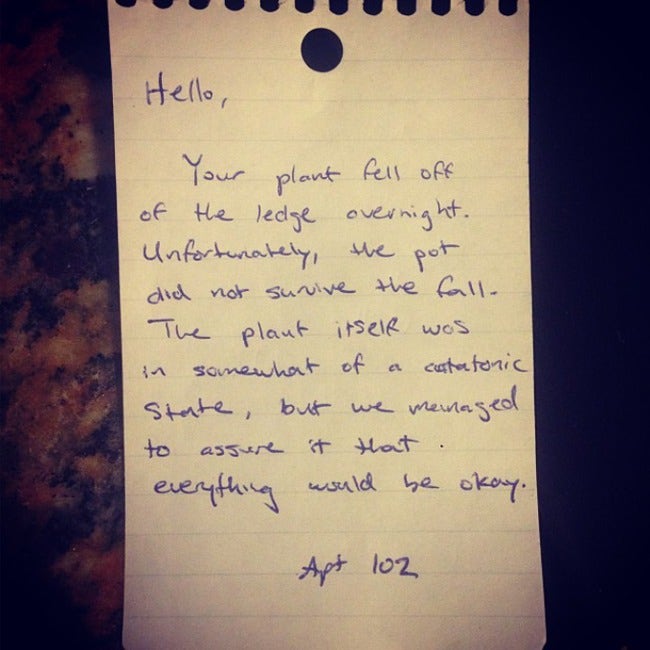 Hello,
Your plant fell off
of the ledge overnight.
Unfortunately, the pot
did not survive the fall.
The plant itself was
in somewhat of a catatonic
state, but we managed
to assure it that
everything would be okay.
Apt 102